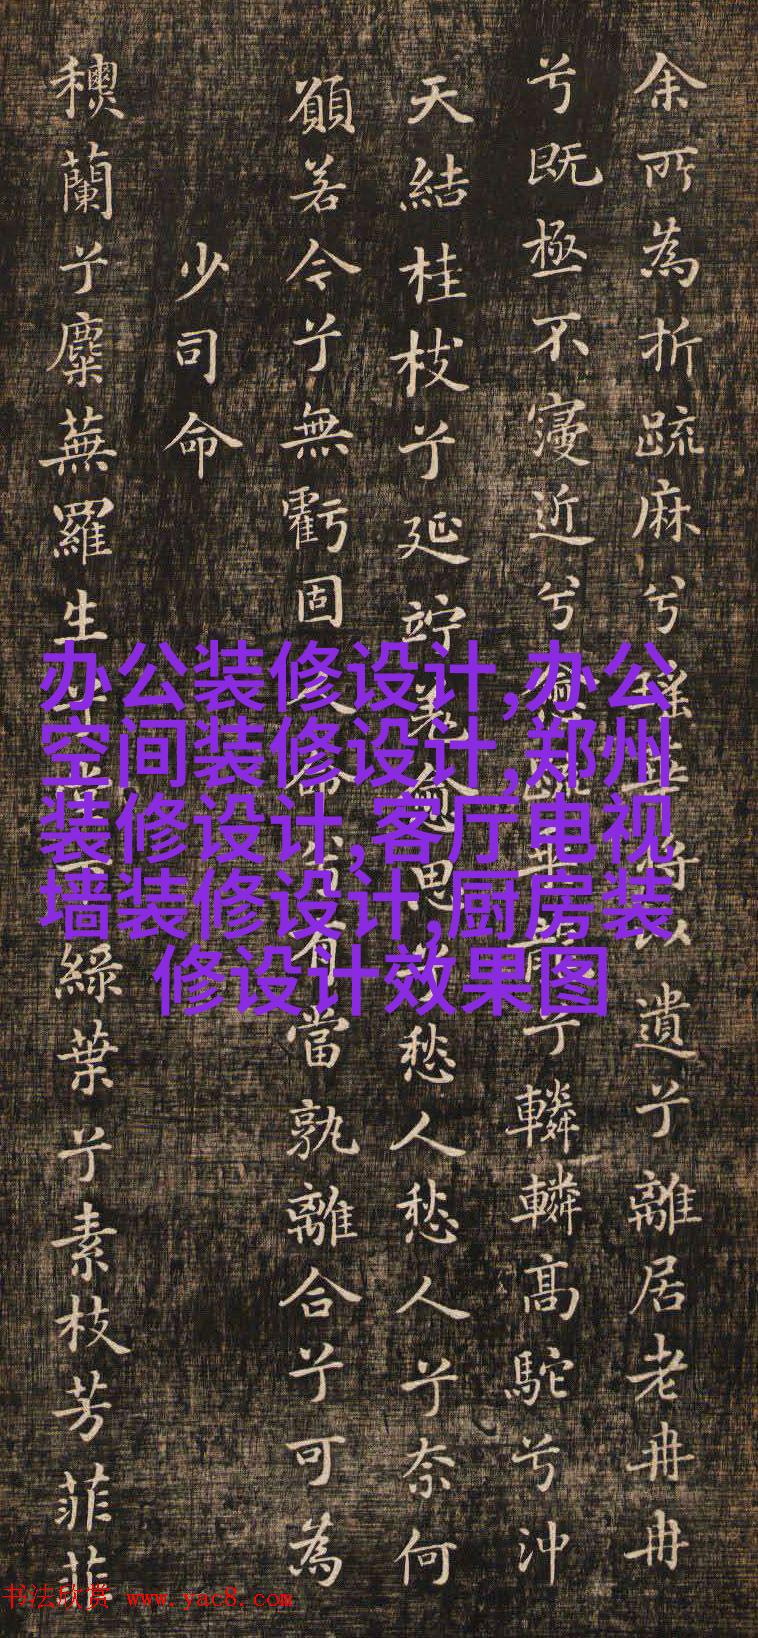 余所為折疏麻兮瑤華將以遺兮離居老冉冉
兮既極不寖近兮愈疏乘龍兮轔轔高駝兮沖
天結桂枝兮延竚羌愈思兮愁人愁人兮奈何
願若今兮無虧固人命兮有當孰離合兮可為
少司命
蘭兮麋蕪羅生兮堂下綠葉兮素枝芳菲菲
办公装修设计,办公
空间装修设计,郑州
装修设计,客厅电视
墙装修设计,厨房装
修设计效果图
书法欣赏 www.yac8.com